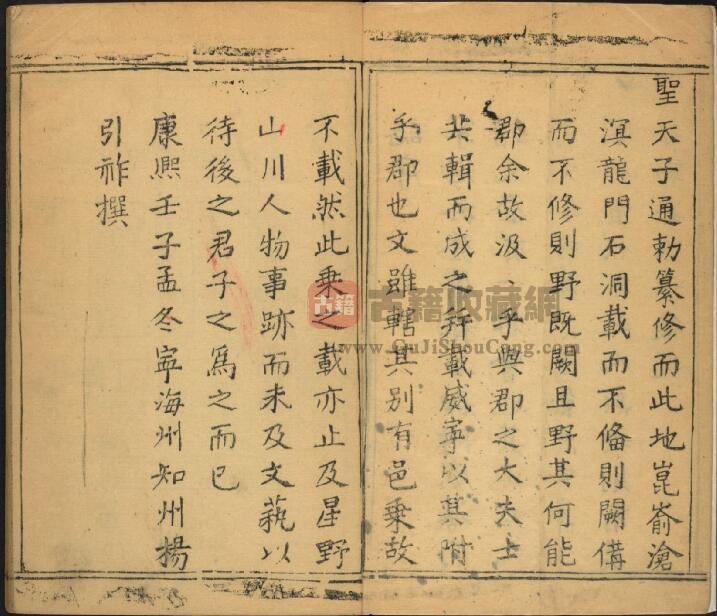 聖天子通勅纂修而此地崑嵛滄
溟龍門石洞載而不偹則闕偹
而不修則野既闕且野其何能
郡余故汲、乎與郡之大夫士
共輯而成之并載威寧以其附
乎郡也文雖轄其别有邑乗故
不載然此乗之載亦止及星野
山川人物事跡而未及文藝以
待後之君子之爲之而已
康熙壬子孟冬寜海州知州楊
引祚撰
古籍
古籍收藏網
www.GuJiShouCang.com